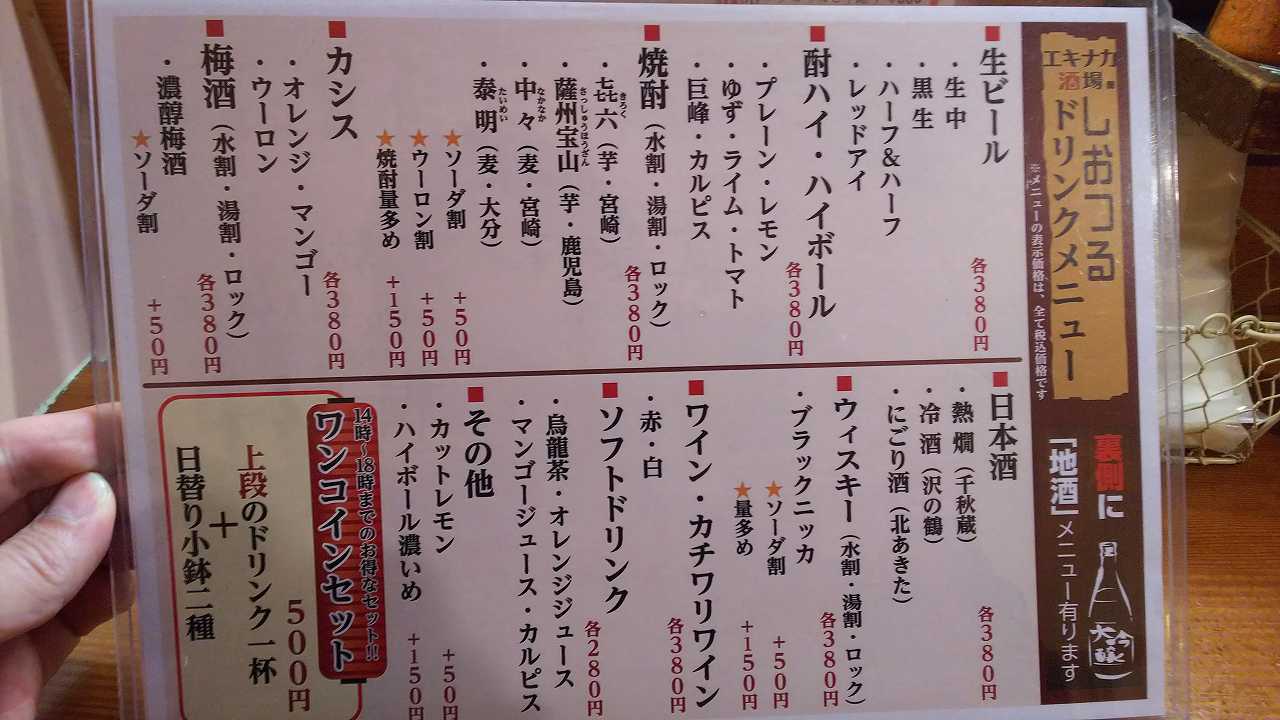 エキナカ酒場
しおつる
ドリンクメニュー
※メニューの表示価格は、全て税込価格です
裏側に
「地酒」メニュー有ります
大吟醸
■生ビール 各380円
・生中
・黒生
・ハーフ&ハーフ
・レッドアイ
■酎ハイ・ハイボール 各380円
・プレーン・レモン
・ゆず・ライム・トマト
・巨峰・カルピス
■焼酎（水割・湯割・ロック） 各380円
・㐂六（芋・宮崎）
きろく
・薩州宝山（芋・鹿児島）
さっしゅうほうざん
・中々（麦・宮崎）
なかなか
・泰明（麦・大分）
たいめい
★ソーダ割 +50円
★ウーロン割 +50円
★焼酎量多め +150円
■カシス 各380円
・オレンジ・マンゴー
・ウーロン
■梅酒（水割・湯割・ロック） 各380円
・濃醇梅酒
★ソーダ割 +50円
■日本酒 各380円
・熱燗（千秋蔵）
・冷酒（沢の鶴）
・にごり酒（北あきた）
■ウィスキー（水割・湯割・ロック） 各380円
・ブラックニッカ
★ソーダ割 +50円
★量多め +150円
■ワイン・カチワリワイン 各380円
・赤・白
■ソフトドリンク 各280円
・烏龍茶・オレンジジュース
・マンゴージュース・カルピス
■その他
・カットレモン +50円
・ハイボール濃いめ +150円
14時〜18時までのお得なセット!!
ワンコインセット
500円
上段のドリンク一杯
+
日替り小鉢二種